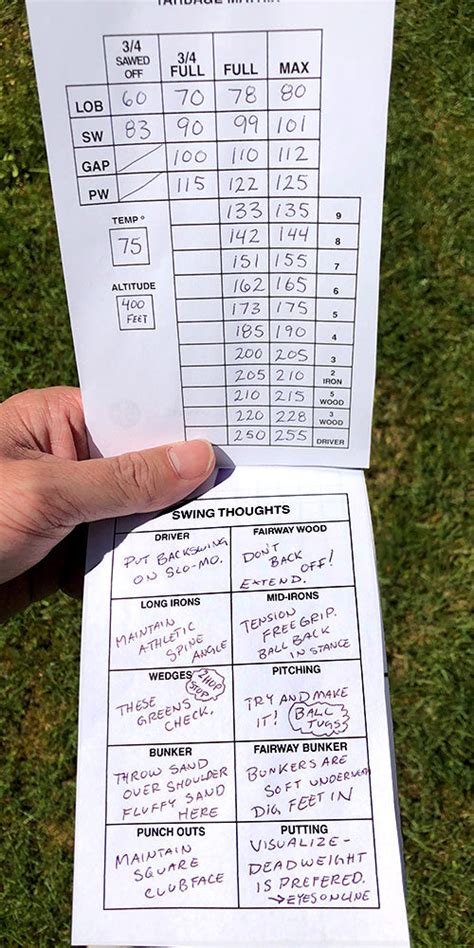 YARDAGE MATRIX
3/4 SAWED OFF 3/4 FULL FULL MAX
LOB 60 70 78 80
SW 83 90 99 101
GAP 100 110 112
PW 115 122 125
133 135 9
TEMP °
142 144 8
75
151 155 7
ALTITUDE
162 165 6
400 FEET
173 175 5
185 190 4
200 205 3
205 210 2 IRON
210 215 5 WOOD
220 228 3 WOOD
250 255 DRIVER
SWING THOUGHTS
DRIVER
PUT BACKSWING
ON SLO-MO.
FAIRWAY WOOD
DON'T
BACK
OFF!
EXTEND.
LONG IRONS
MAINTAIN
ATHLETIC
SPINE
ANGLE
MID-IRONS
TENSION
FREE GRIP.
BALL BACK
IN STANCE
WEDGES
2 HOP
STOP
THESE
GREENS
CHECK.
PITCHING
TRY AND MAKE
IT! BALL
TUGS
BUNKER
THROW SAND
OVER SHOULDER
FLUFFY SAND
HERE
FAIRWAY BUNKER
BUNKERS ARE
SOFT UNDERNEA
DIG FEET IN
PUNCH OUTS
MAINTAIN
SQUARE
CLUBFACE
PUTTING
VISUALIZE-
DEADWEIGHT
IS PREFERED.
→EYES ON LINE